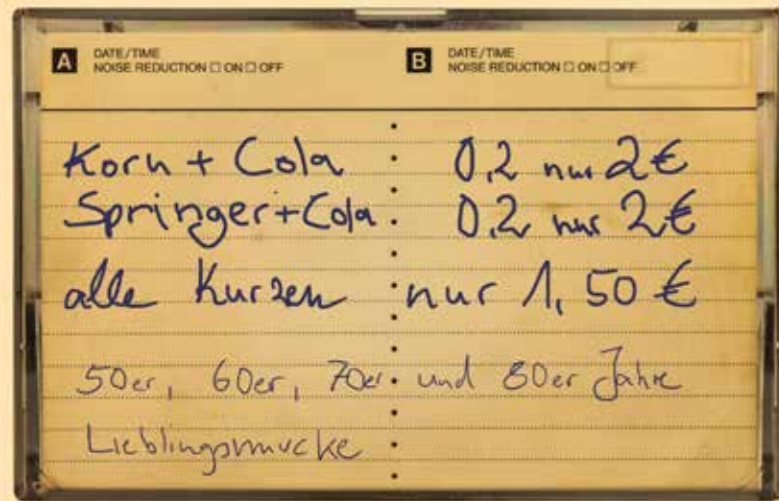 A DATE/TIME B DATE/TIME
NOISE REDUCTION □ ON □ OFF NOISE REDUCTION □ ON □ OFF
Korn + Cola 0,2 nur 2€
Springer + Cola 0,2 nur 2€
alle Kurzen nur 1,50 €
50er, 60er, 70er und 80er Jahre
Lieblingsmucke